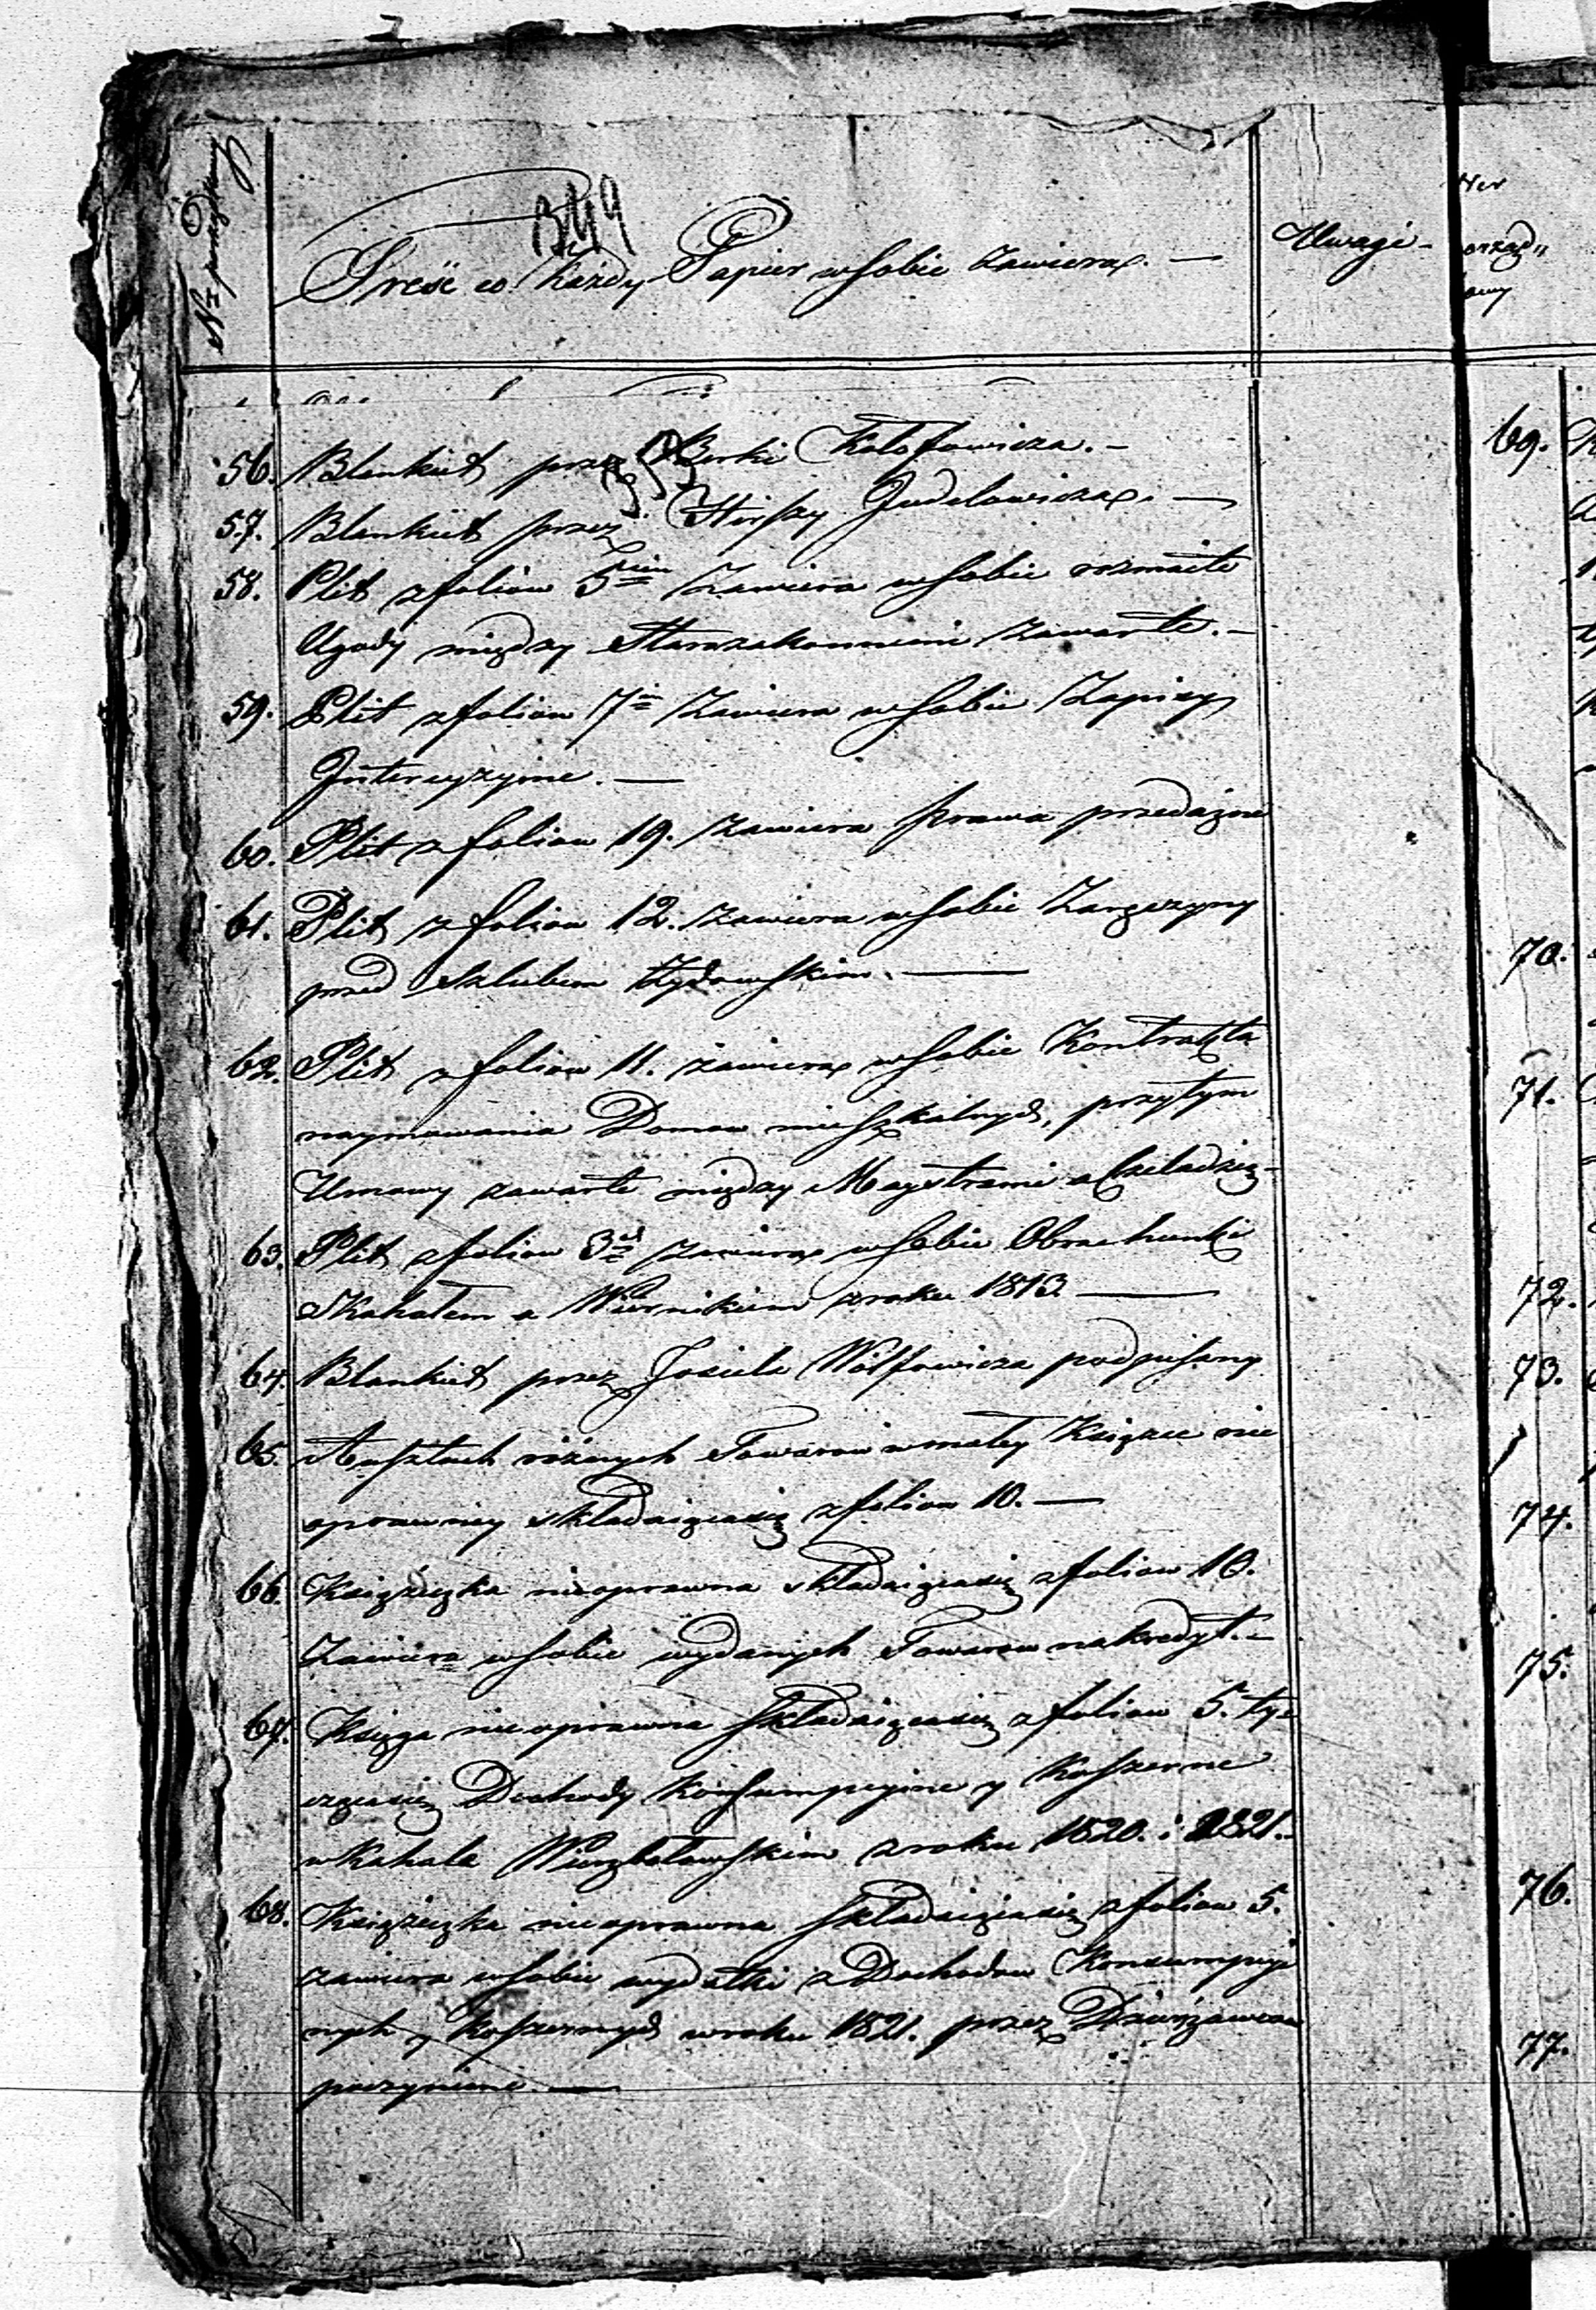 Nr porządkowy
349
Treść co każdy Papier w sobie zawiera. —
Uwagi
Ner
porząd„
kowy
56. Blankiet przez Berki Kalofowicza. —
353
57. Blankiet przez Hirszy Judelowicza. —
58. Plik z foliow 5ciu Zawiera w sobie rozmaite
Ugody między Starozakonnemi zawarte. —
59. Plik z foliow 7iu Zawiera w sobie Zapisy
Intercyzyine. —
60. Plik z foliow 19. zawiera prawa przedażne
61. Plik z foliow 12. zawiera w sobie Zaręczyny
przed szlubem Żydowskim. —
62. Plik z foliow 11. zawiera w sobie Kontrakta
naymowania Domow mieszkalnych, przytym
Umowy zawarte między Maystrami a Czeladzią
63. Plik z foliow 3ch zawiera w sobie Obrachunki
z Kahałem a Wiernikiem z roku 1813. —
64. Blankiet przez Josiela Wolfowicza podpisany
65. różnych Towarow w małey Książce nie
oprawney składaiącasię z foliow 10. —
66. Książeczka nieoprawna składaiącasię z foliow 10.
Zawiera w sobie wydanych Towarow na kredyt. —
67. Księga nieoprawna składaiącasię z foliow 5. ty„
czącasię Dochody konsumpcyine y Koszerne
w Kahale Wierzbołowskim z roku 1820. i 1821. —
68. Książeczka nieoprawna składaiącasię z foliow 5.
zawiera w sobie wydatki z Dochodow Konsumpcyi
nych y Koszernych w roku 1821. przez Dzierżawcow
poczynione. —
69.
70.
71.
72.
73.
74.
75.
76.
77.